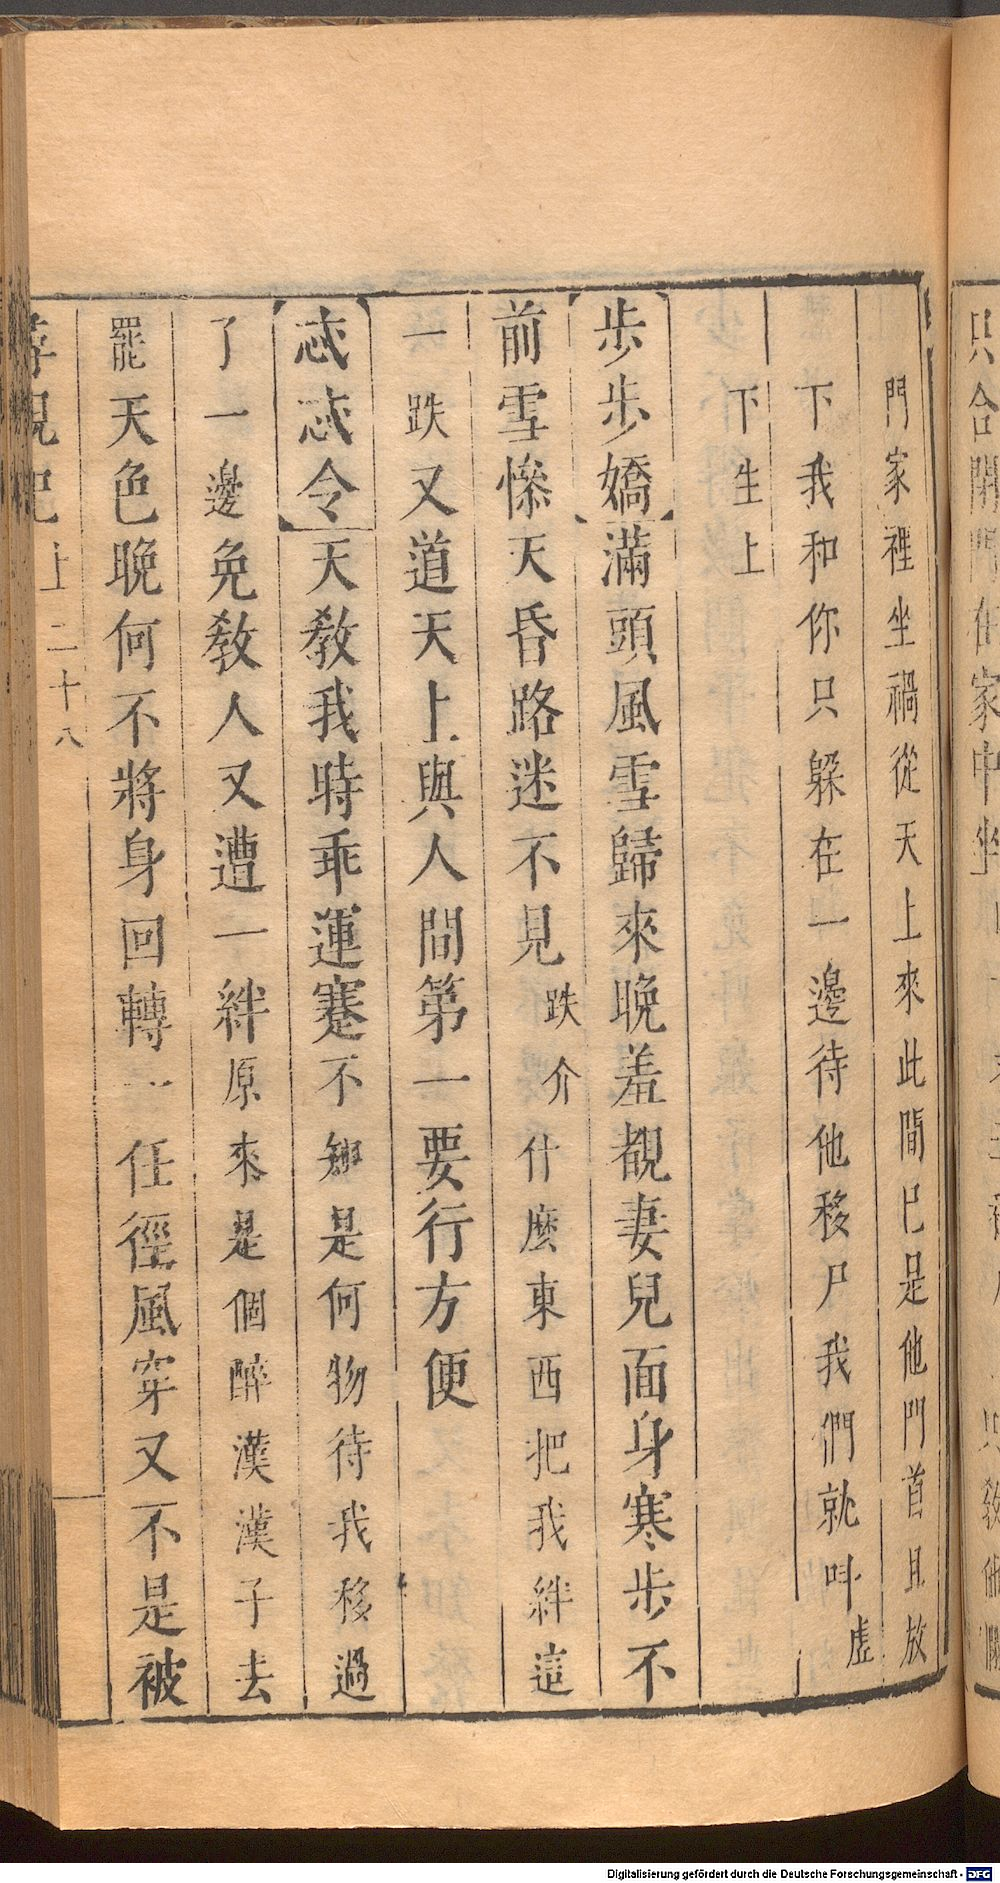 門家裡坐禍從天上來此間已是他門首且放
下我和你只躱在一邊待他移尸我們就叫虛
下生上
步步嬌滿頭風雪歸來晚羞覩妻兒面身寒步不
前雪慘天昏路迷不見跌介什麽東西把我絆這
一跌又道天上與人間第一要行方便
忒忒令天教我時乖運蹇不知是何物待我移過
了一邊免教人又遭一絆原來是個醉漢漢子去
罷天色晚何不將身回轉一任徑風穿又不是被
上二十八
Digitalisierung gefördert durch die Deutsche Forschungsgemeinschaft - DFG